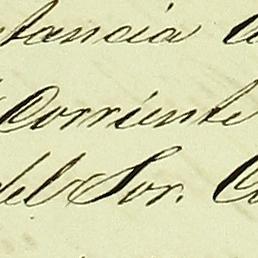 tancia
Corriente
del Sor.